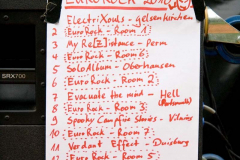 EUROROCK
SRX700
ElectriXouls - gelsenkirchen
2 EuroRock - Room 1
3 My Re[z]istance - Perm
4 EuroRock - Room 6
5 SoloAlbum - Oberhausen
6 EuroRock - Room 2
7 Evacuate the mind - Hell
8 EuroRock - Room 3
9 Spooky Campfire Stories - Vilnius
10 EuroRock - Room 7
11 Verdant Effect - Duisburg
12 EuroRock - Room 5